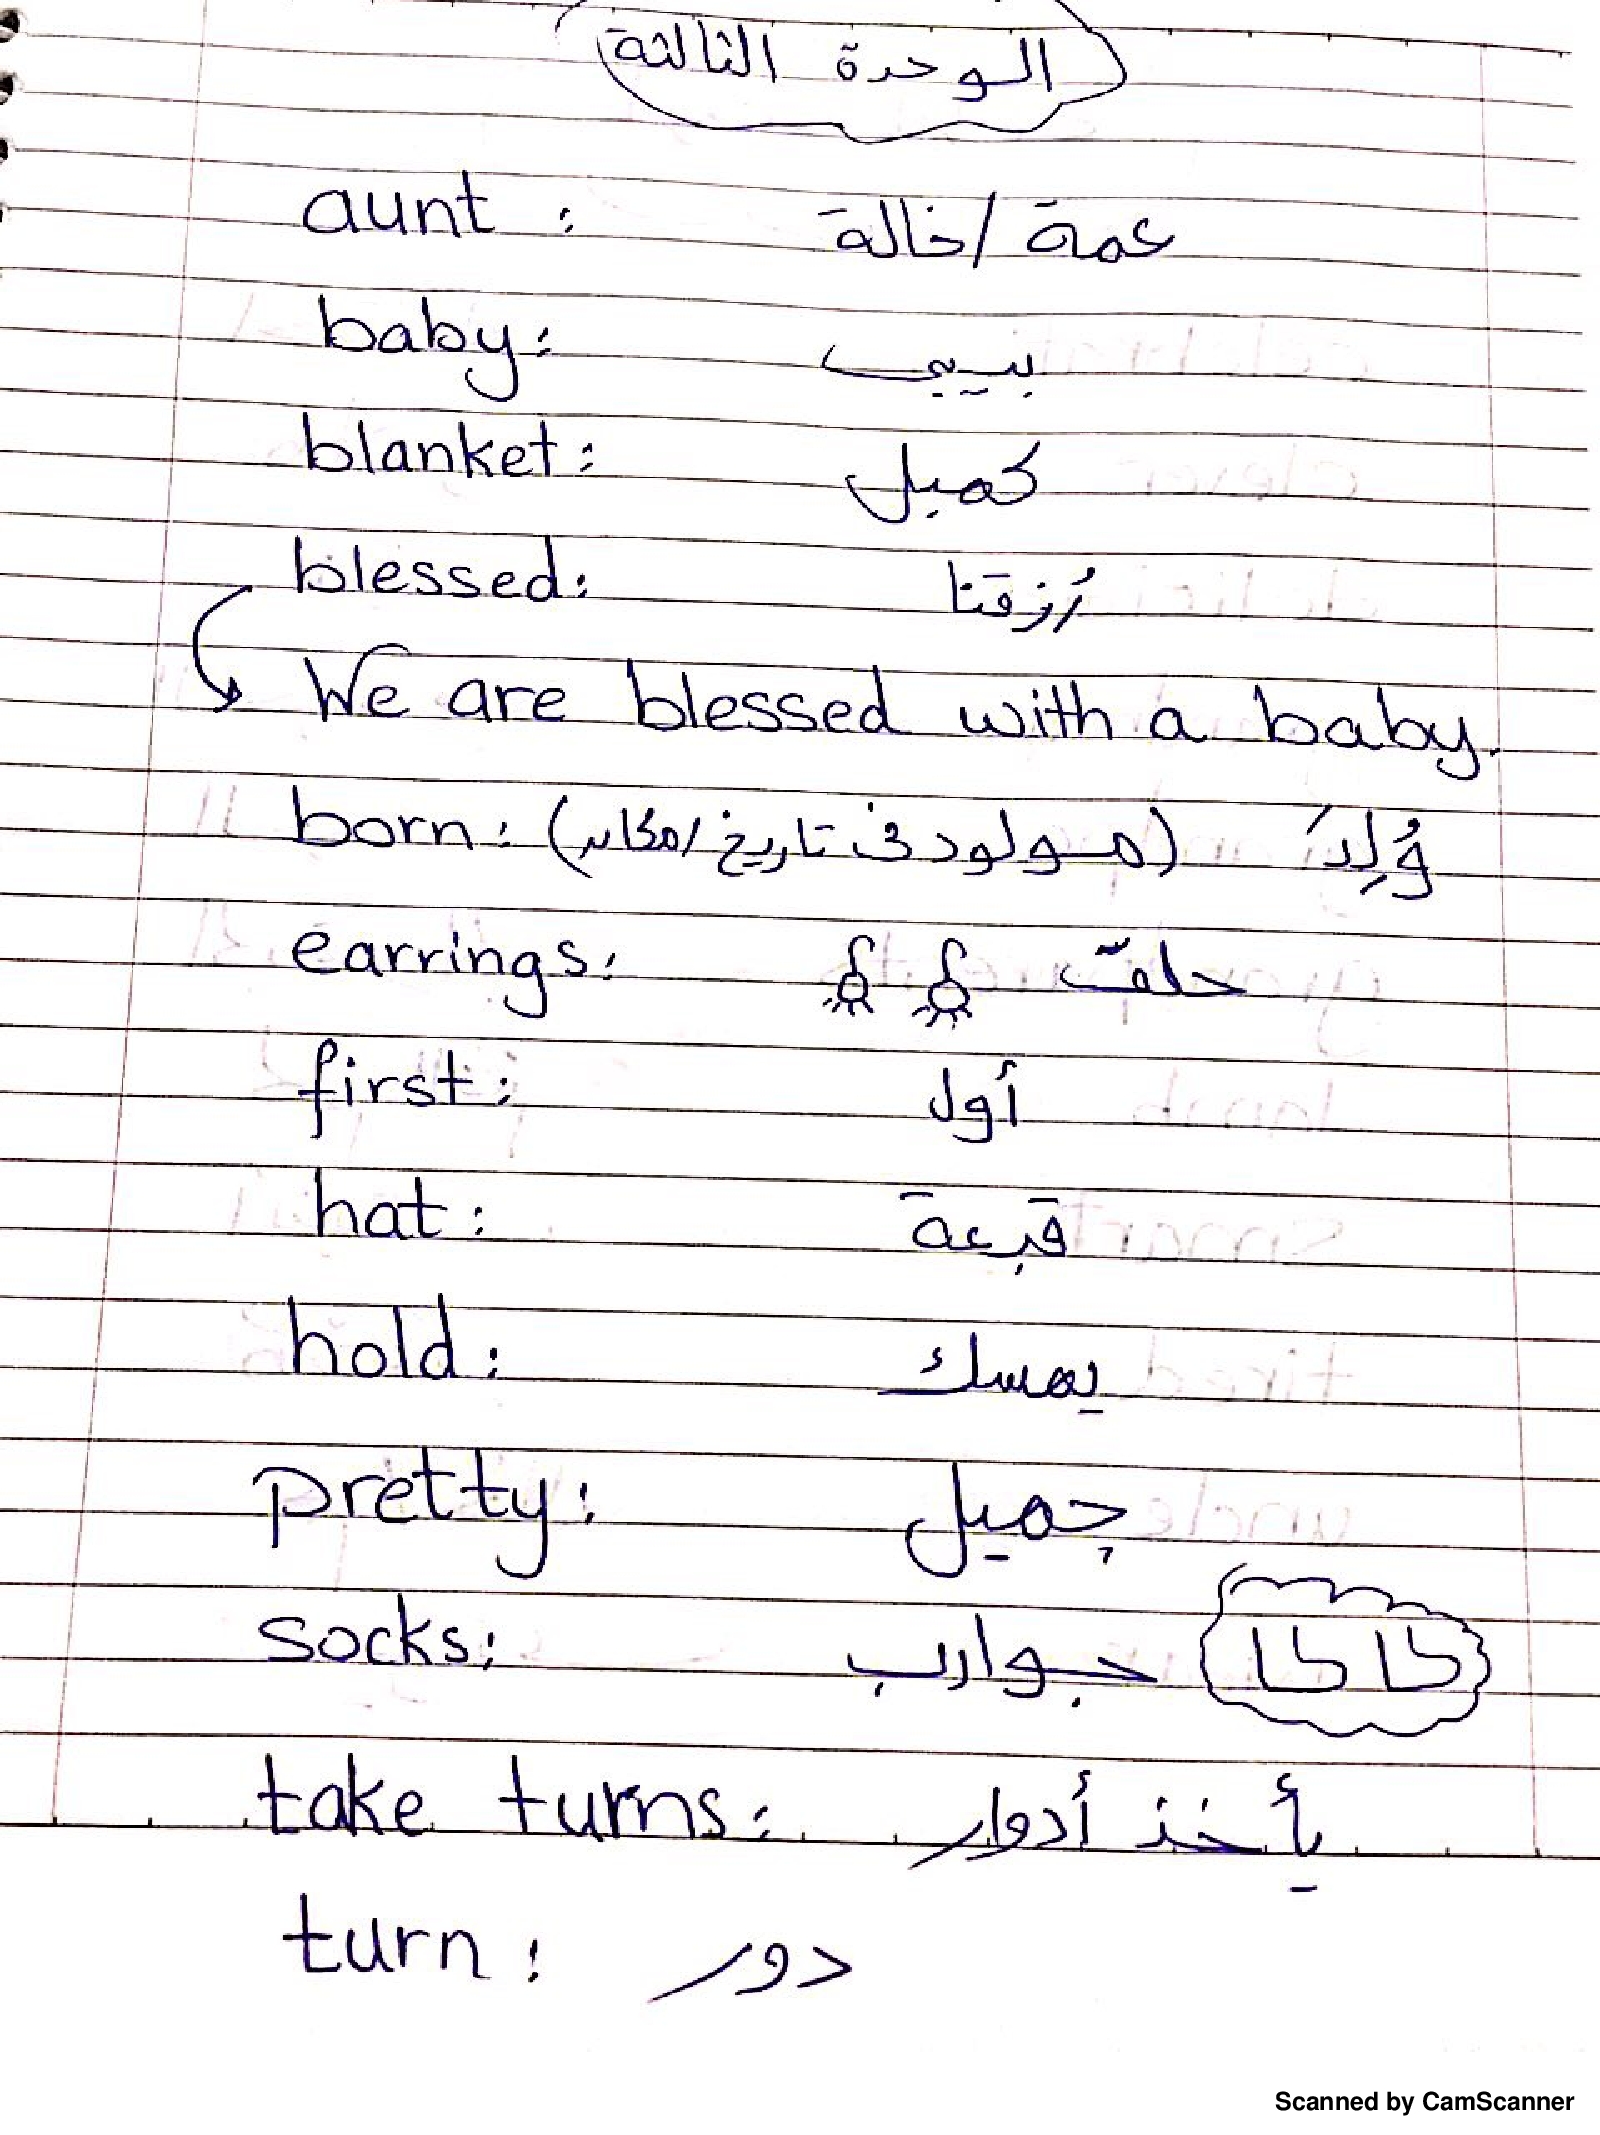 الوحدة الثالثة
aunt : عمة / خالة
baby : بيبي
blanket : كمبل
blessed : رُزقنا
We are blessed with a baby.
born : (مولود في تاريخ / مكان) وُلِدَ
earrings : حلق
first : أول
hat : قبعة
hold : يمسك
pretty : جميل
socks : جوارب
take turns : يأخذ أدوار
turn : دور
Scanned by CamScanner